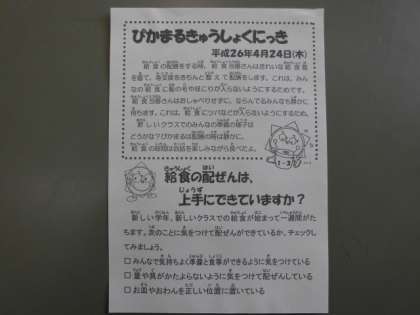 ぴかまるきゅうしょくにっき
平成26年4月24日(木)
給食の配膳をする時、給食当番さんはきれいな給食着
を着て、身支度をきちんと整えて配膳をします。これは、みん
なの給食に髪の毛やほこりが入らないようにするためです。
給食当番さんはおしゃべりせずに、ならんでるみんなも静かに
待ちます。これは、給食にツバなどが入らないようにするため。
新しいクラスでのみんなの準備の様子は
どうかな?ぴかまるは配膳の時は静かに、
給食の時間は会話を楽しみながら食べたよ。
きゅうしょく はい
給食の配ぜんは、
じょうず
上手にできていますか?
新しい学年、新しいクラスでの給食が始まって一週間がた
ちます。次のことに気をつけて配ぜんができているか、チェックし
てみましょう。
□みんなで気持ちよく準備と食事ができるように気をつけている
□量や具がかたよらないように気をつけて配ぜんしている
□お皿やおわんを正しい位置に置いている